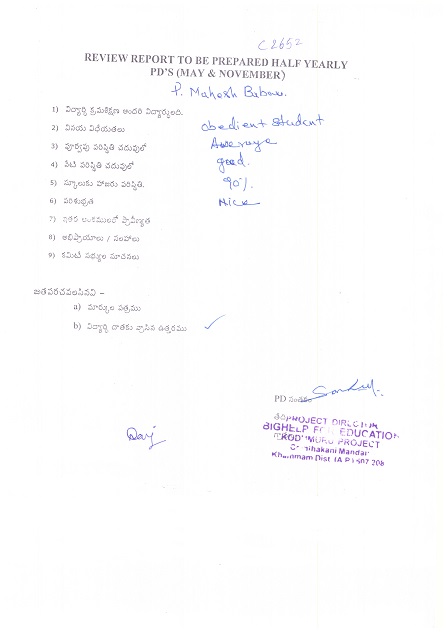 C 2652
REVIEW REPORT TO BE PREPARED HALF YEARLY
PD'S (MAY & NOVEMBER)
P. Mahesh Babu.
1) విద్యార్థి క్రమశిక్షణ అందరి విద్యార్థులది.
2) వినయ విధేయతలు obedient student
3) పూర్వపు పరిస్థితి చదువులో Average
4) నేటి పరిస్థితి చదువులో good.
5) స్కూలుకు హాజరు పరిస్థితి. 90%.
6) పరిశుభ్రత Nice
7) ఇతర అంశములలో ప్రావీణ్యత
8) అభిప్రాయాలు / సలహాలు
9) కమిటీ సభ్యుల సూచనలు
జతపరచవలసినవి –
a) మార్కుల పత్రము
b) విద్యార్థి దాతకు వ్రాసిన ఉత్తరము ✓
PD సంతకం
PROJECT DIRECTOR
BIGHELP FOR EDUCATION
KODUMURU PROJECT
Mandal
Khammam Dist. (A.P) 507 208